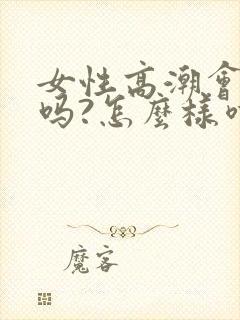 女性高潮會
吗?怎麼樣
魔客